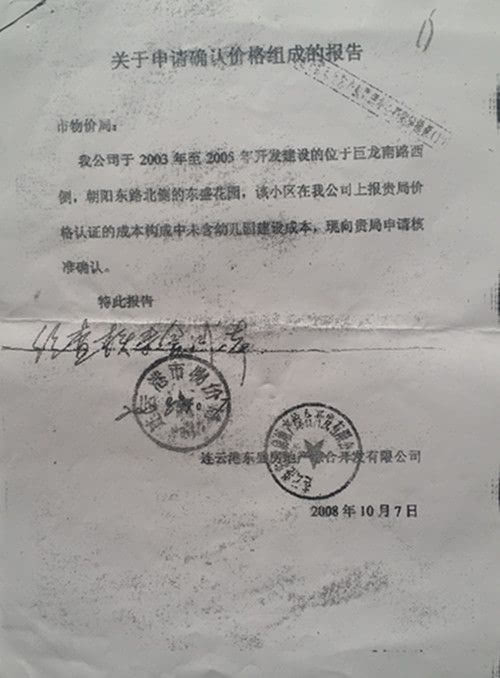 关于申请确认价格组成的报告
市物价局:
我公司于 2003 年至 2005 年开发建设的位于巨龙南路西
侧,朝阳东路北侧的东盛花园,该小区在我公司上报贵局价
格认证的成本构成中未含幼儿园建设成本,现向贵局申请核
准确认。
特此报告
连云港市物价局
连云港东盛房地产综合开发有限公司
2008 年 10 月 7 日